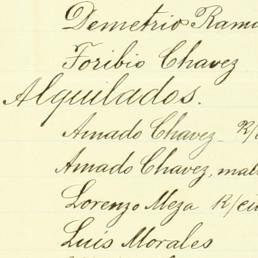 Demetrio
Foribio Chavez
Alquilados.
Amado Chavez
Amado Chavez,
Lorenzo Meza
Luis Morales